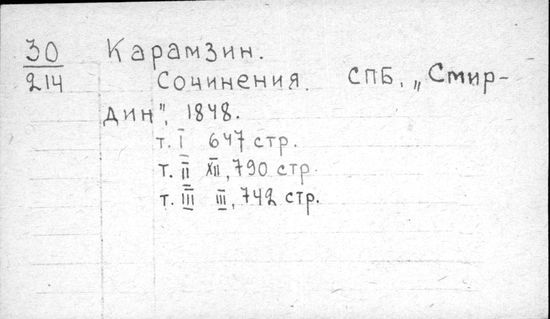 30 Карамзин.
214 Сочинения. СПБ. „Смир-
дин", 1848.
т. I 647 стр.
т. II XII, 790 стр.
т. III III, 742 стр.